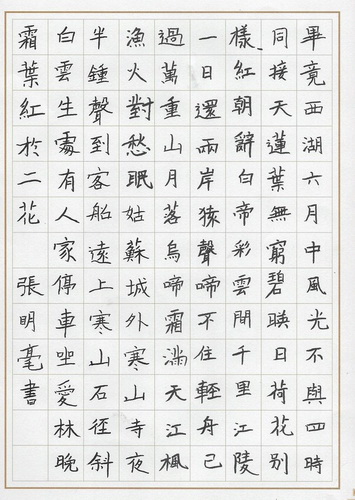 畢竟西湖六月中風光不與四時
同接天蓮葉無窮碧映日荷花別
樣紅朝辭白帝彩雲間千里江陵
一日還兩岸猿聲啼不住輕舟已
過萬重山月落烏啼霜滿天江楓
漁火對愁眠姑蘇城外寒山寺夜
半鍾聲到客船遠上寒山石徑斜
白雲生處有人家停車坐愛林晚
霜葉紅於二花 張明毫書